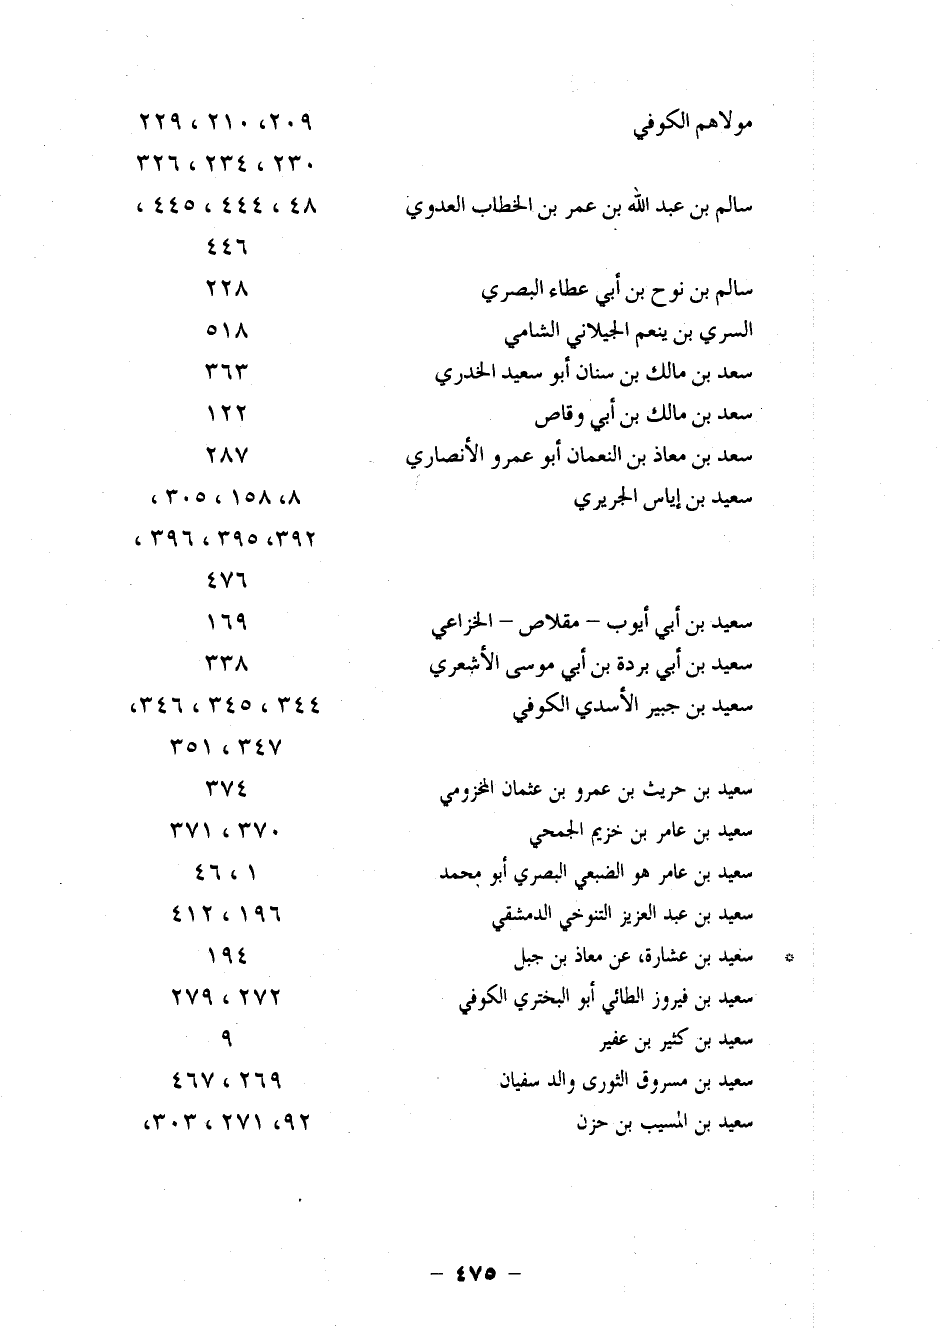 مولاهم الكوفي ٢٠٩، ٢١٠ ، ٢٢٩
٢٣٠ ، ٢٣٤ ، ٣٢٦
سالم بن عبد الله بن عمر بن الخطاب العدوي ٤٨ ، ٤٤٤ ، ٤٤٥ ،
٤٤٦
سالم بن نوح بن أبي عطاء البصري ٢٢٨
السري بن ينعم الجيلاني الشامي ٥١٨
سعد بن مالك بن سنان أبو سعيد الخدري ٣٦٣
سعد بن مالك بن أبي وقاص ١٢٢
سعد بن معاذ بن النعمان أبو عمرو الأنصاري ٢٨٧
سعيد بن إياس الجريري ٨، ١٥٨ ، ٣٠٥ ،
٣٩٢، ٣٩٥ ، ٣٩٦ ،
٤٧٦
سعيد بن أبي أيوب – مقلاص – الخزاعي ١٦٩
سعيد بن أبي بردة بن أبي موسى الأشعري ٣٣٨
سعيد بن جبير الأسدي الكوفي ٣٤٤ ، ٣٤٥ ، ٣٤٦،
٣٤٧ ، ٣٥١
سعيد بن حريث بن عمرو بن عثمان المخزومي ٣٧٤
سعيد بن عامر بن خزيم الجمحي ٣٧٠ ، ٣٧١
سعيد بن عامر هو الضبعي البصري أبو محمد ١ ، ٤٦
سعيد بن عبد العزيز التنوخي الدمشقي ١٩٦ ، ٤١٢
* سعيد بن عشارة، عن معاذ بن جبل ١٩٤
سعيد بن فيروز الطائي أبو البختري الكوفي ٢٧٢ ، ٢٧٩
سعيد بن كثير بن عفير ٩
سعيد بن مسروق الثورى والد سفيان ٢٦٩ ، ٤٦٧
سعيد بن المسيب بن حزن ٩٢، ٢٧١ ، ٣٠٣،
– ٤٧٥ –